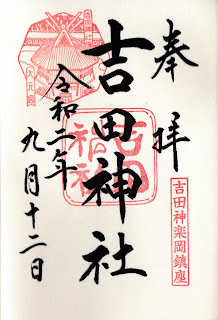 奉拝
吉田神楽岡鎮座
吉田神社
吉田神社
令和二年
九月十二日
大元宮